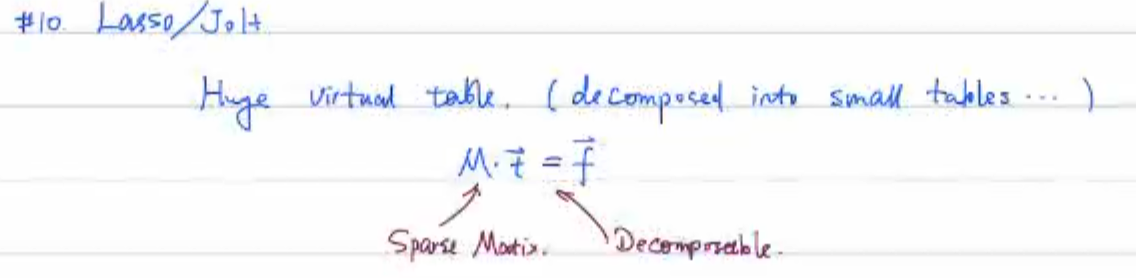 #10. Lasso/Jolt
Huge virtual table. (decomposed into small tables ... )
M · t⃗ = f⃗
Sparse Matix. Decomposable.